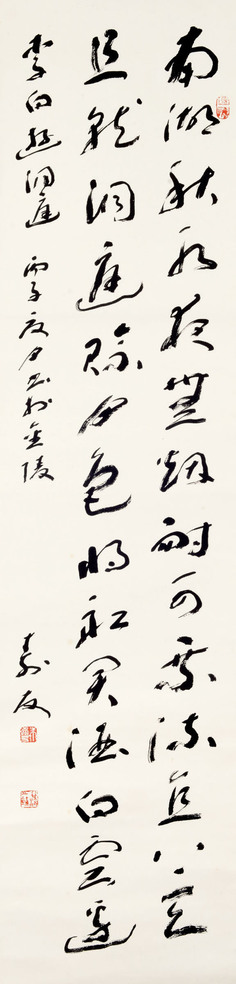 南湖秋水夜無烟耐可乘流直上天
且就洞庭賒月色將船買酒白雲邊
李白遊洞庭 丙子夏月書於金陵
友